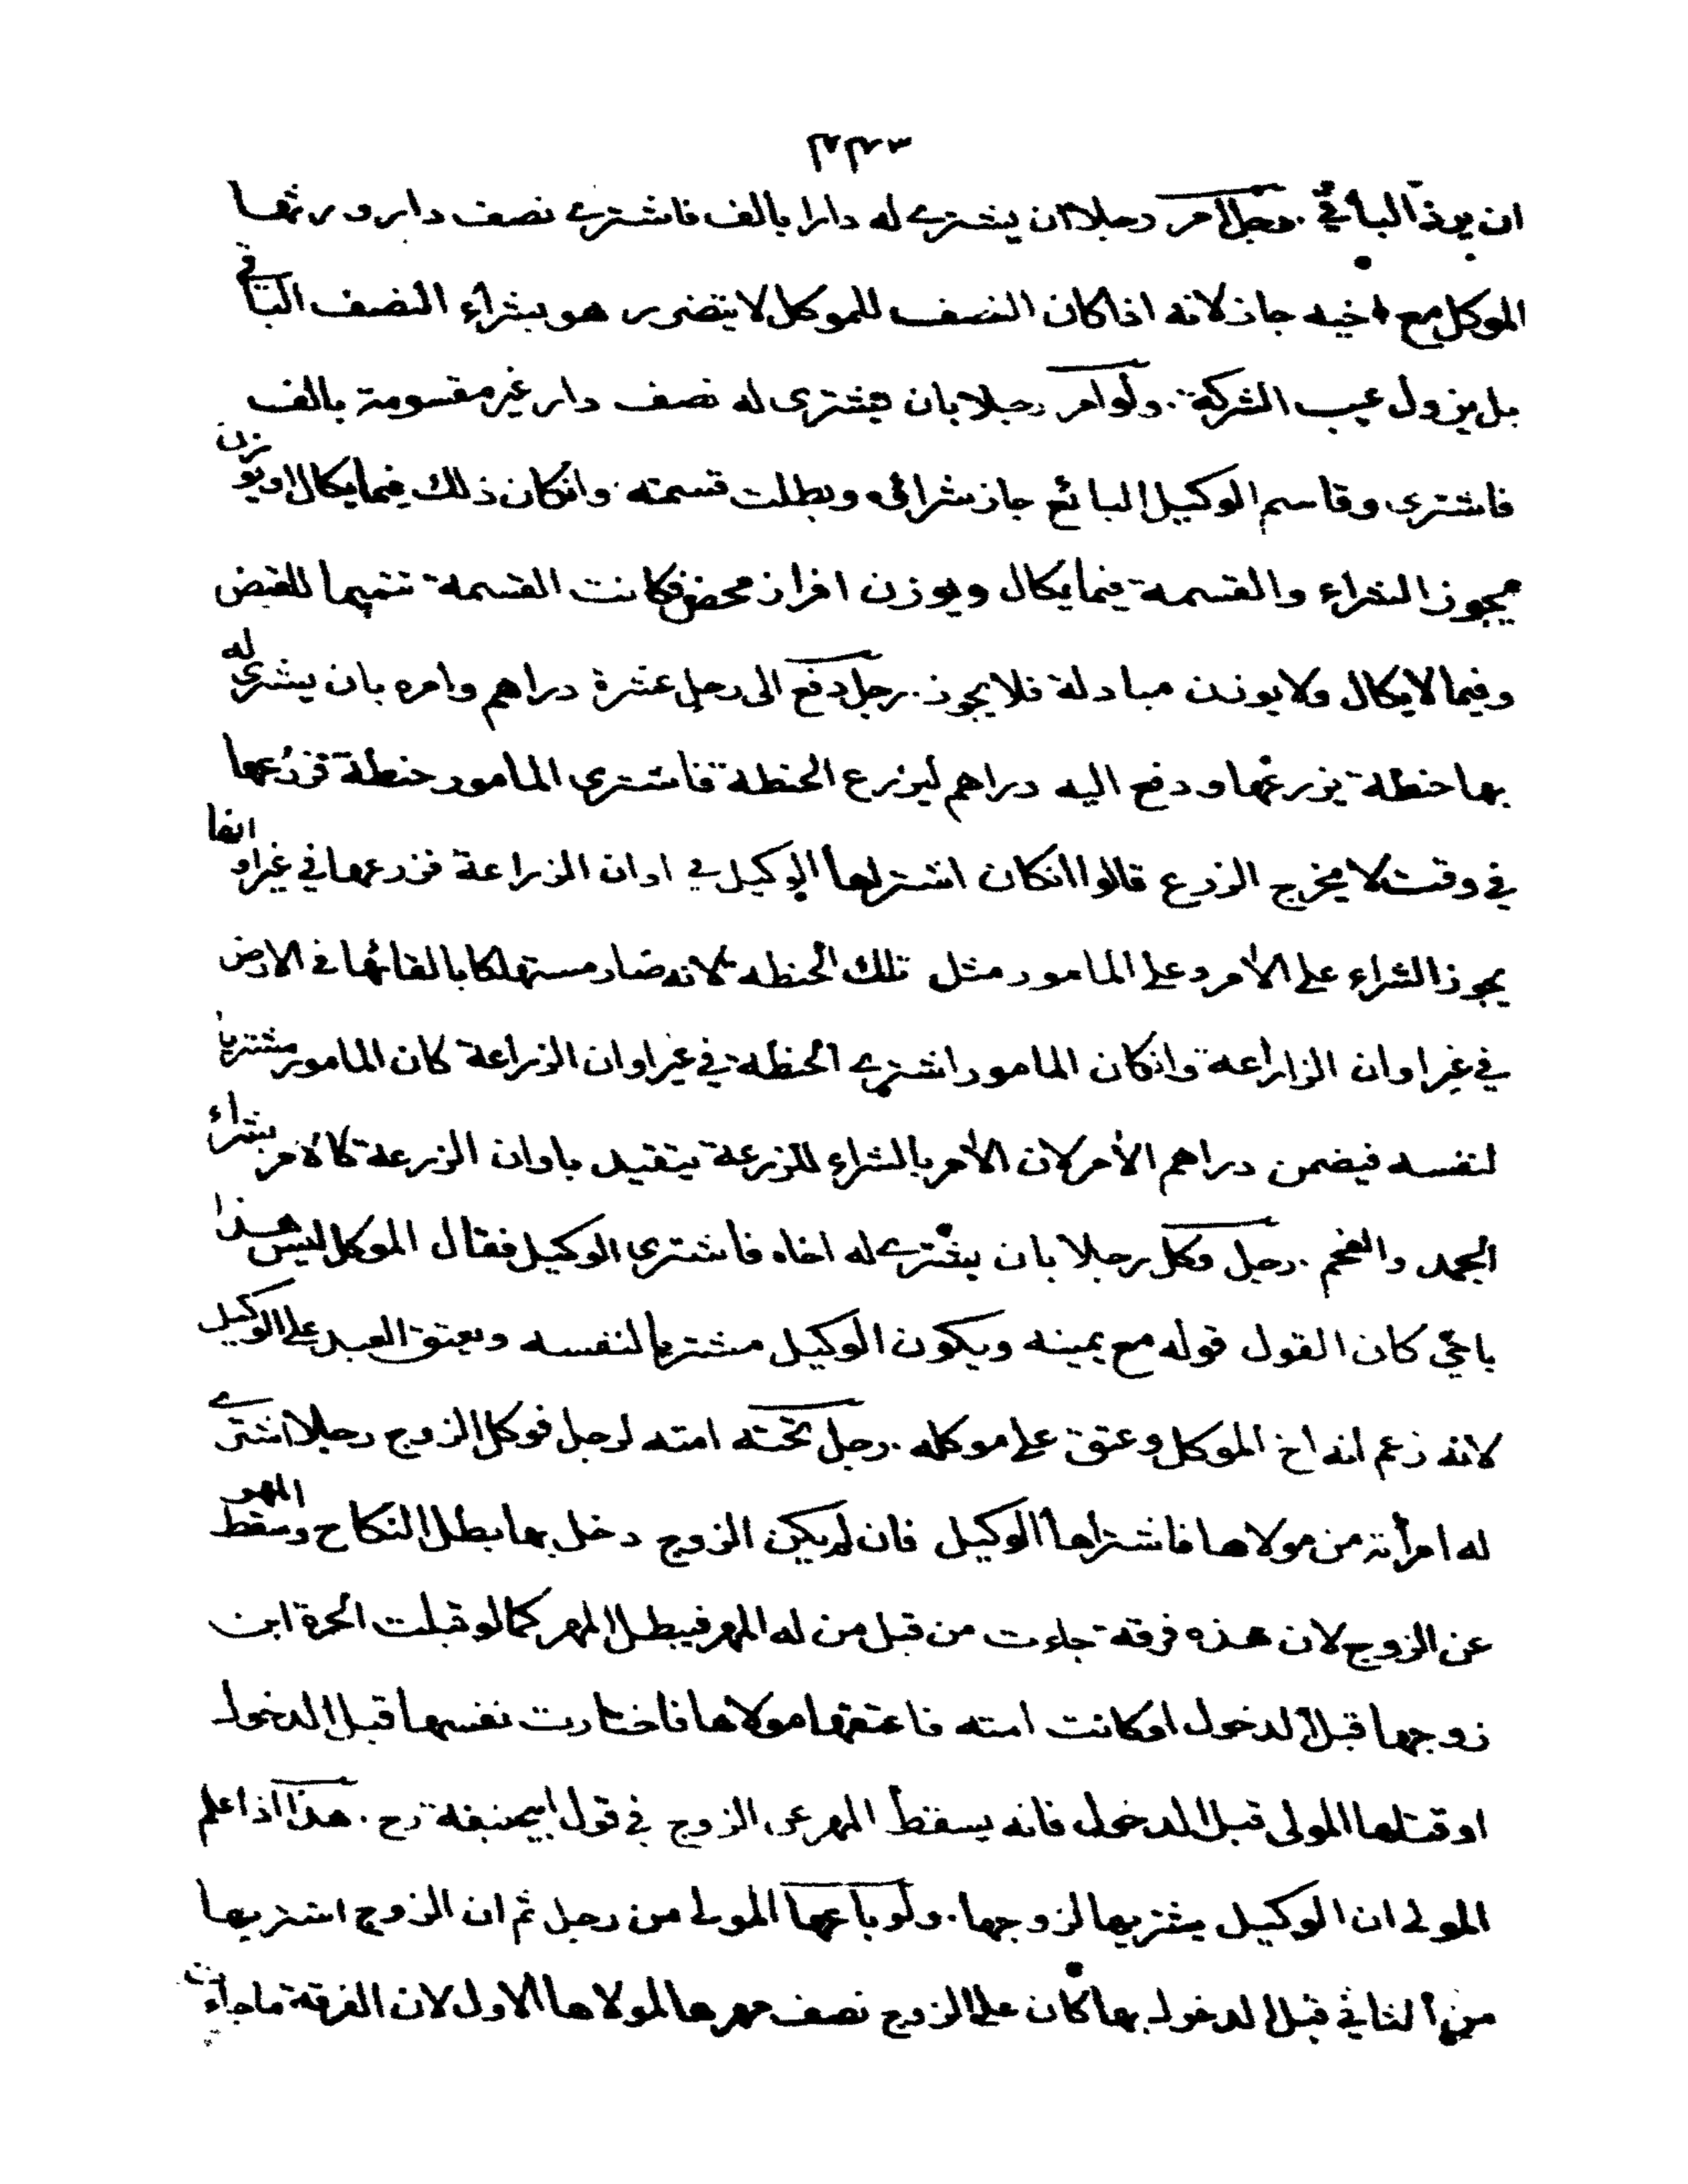 ان يرد الباقي . رجل امر رجلا ان يشترے له دارا بالف فاشترے نصف دار ورثها
الموكل مع اخيه جاز لانه اذا كان النصف للموكل لا يتضرر هو بشراء النصف الباقي
بل يزول عيب الشركة . ولو امر رجلا بان يشترى له نصف دار غير مقسومة بالف
فاشترى وقاسم الوكيل البائع جاز شرائه وبطلت قسمته وانكان ذلك فيما يكال او يوزن
يجوز الشراء والقسمة فيما يكال ويوزن افراز محض فكانت القسمة تتميما للقبض
وفيما لا يكال ولا يوزن مبادلة فلا يجوز . رجل دفع الى رجل عشرة دراهم وامره بان يشترى له
بها حنطة يزرعها ودفع اليه دراهم ليزرع الحنطة فاشترى المامور حنطة فزرعها
في وقت لا يخرج الزرع قالوا انكان اشتراها الوكيل في اوان الزراعة فزرعها في غير اوانها
يجوز الشراء على الأمر وعلى المامور مثل تلك الحنطه لانه صار مستهلكا بالقائها في الارض
في غير اوان الزاراعة وانكان المامور اشترے الحنطة في غير اوان الزراعة كان المامور مشتريا
لنفسه فيضمن دراهم الأمر لان الأمر بالشراء للزرعة يتقيد باوان الزرعة كالأمر بشراء
الجمد والفحم . رجل وكل رجلا بان يشترے له اخاه فاشترى الوكيل فقال الموكل ليس هذا
باخي كان القول قوله مع يمينه ويكون الوكيل مشتريا لنفسه ويعتق العبد على الوكيل
لانه زعم انه اخ الموكل وعتق على موكله . رجل تحته امته لرجل فوكل الزوج رجلا اشترے
له امرأته من مولاها فاشتراها الوكيل فان لم يكن الزوج دخل بها بطل النكاح وسقط المهر
عن الزوج لان هذه فرقة جاءت من قبل من له المهر فيبطل المهر كما لو قبلت الحرة ابن
زوجها قبل الدخول او كانت امته فاعتقها مولاها فاختارت نفسها قبل الدخول
او قتلها المولى قبل الدخول فانه يسقط المهر عن الزوج في قول ابيحنيفة رح . هذا اذا علم
المولى ان الوكيل يشتريها لزوجها . ولو باعها المولى من رجل ثم ان الزوج اشتريها
من الثاني قبل الدخول بها كان على الزوج نصف مهرها لمولاها الاول لان الفرقة ما جاءت